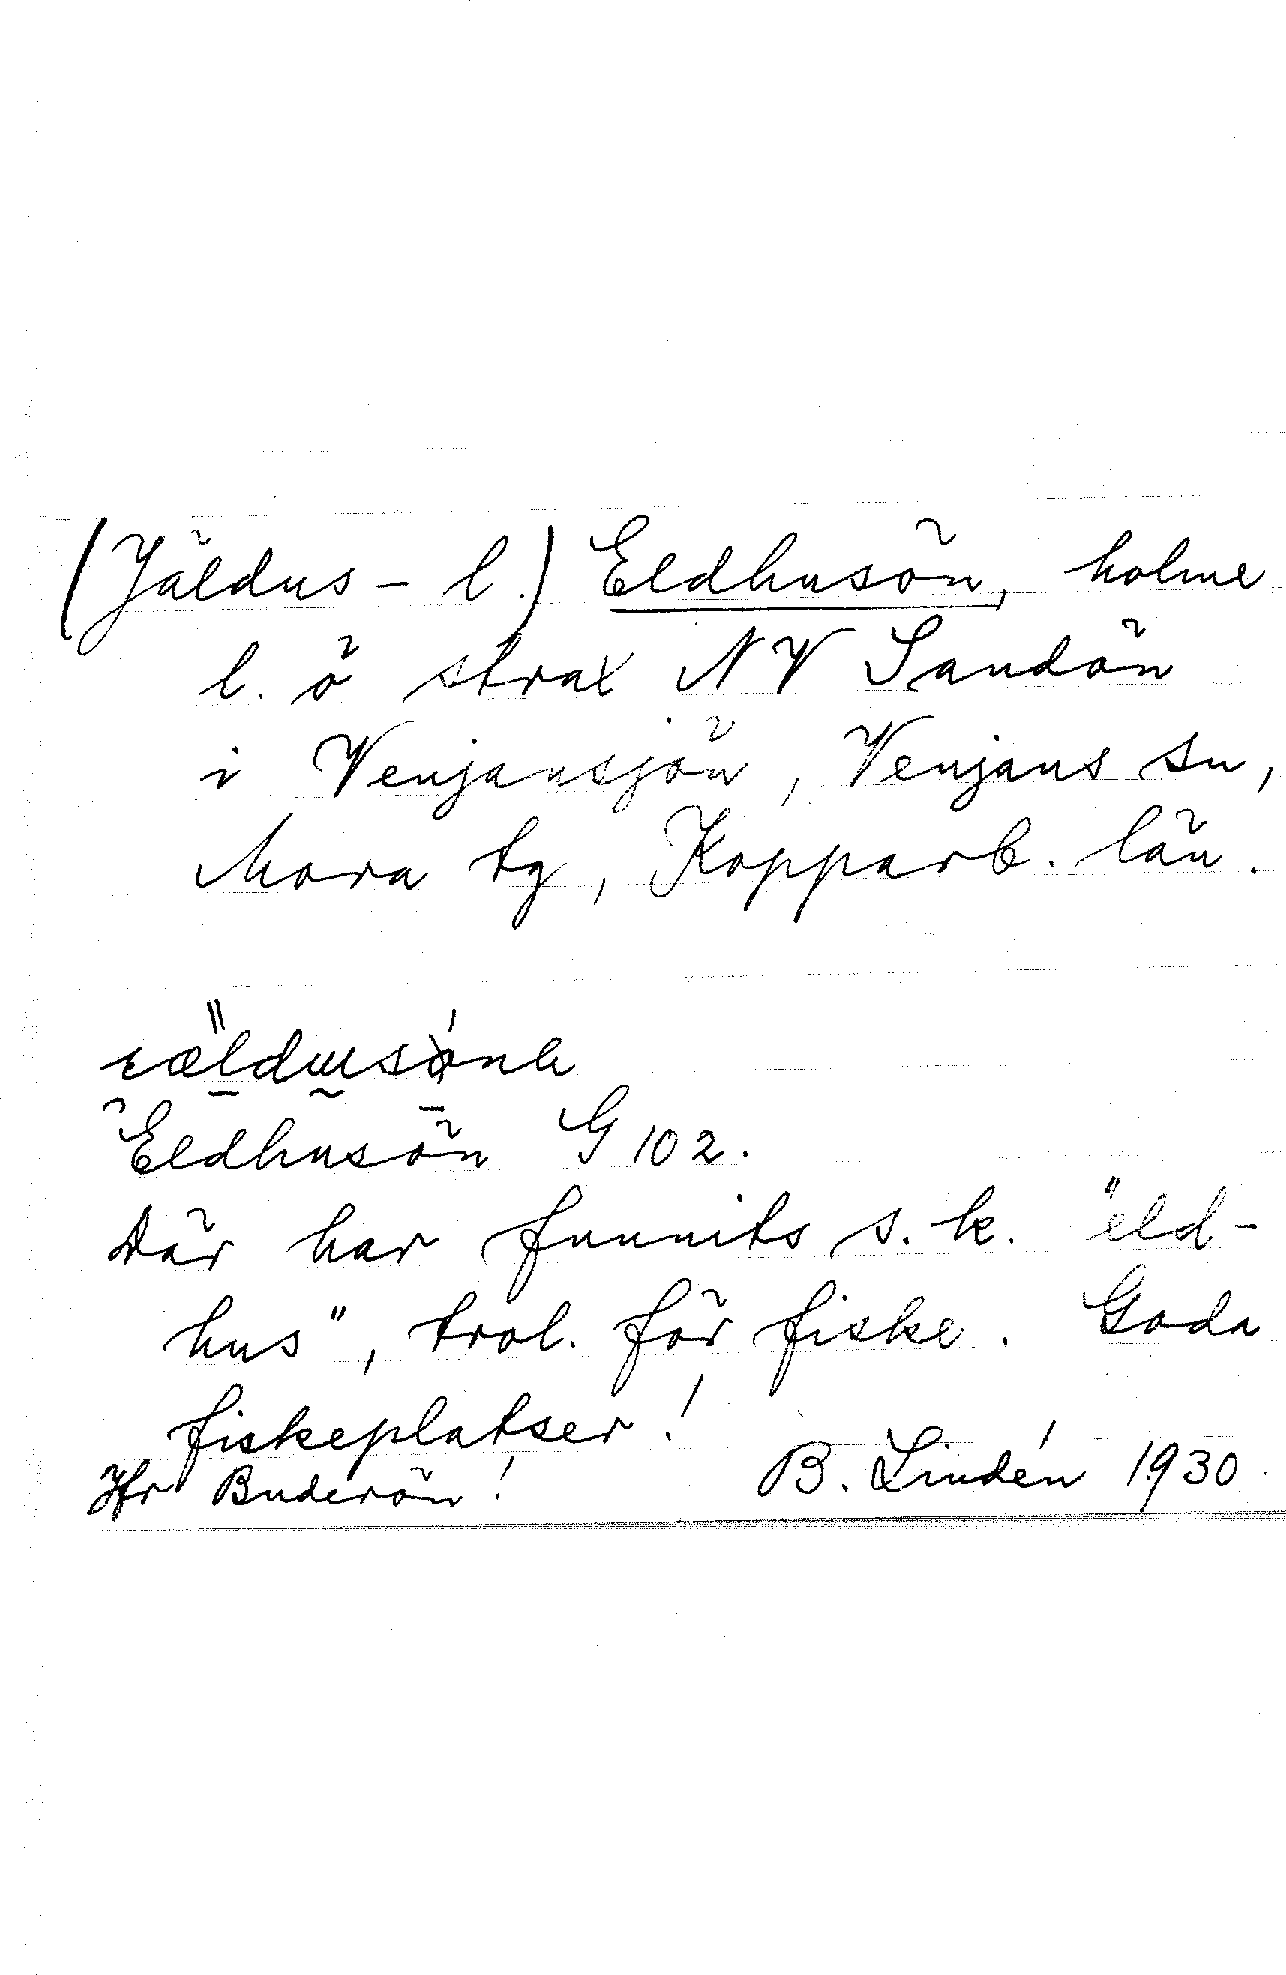 (Jäldus- l.) Eldhusön, holme
l. ö strax NV Sandön
i Venjansjön, Venjans sn,
Mora tg, Kopparb. län.
Eldhusön G 102.
Där har funnits s.k. "eld-
hus", trol. för fiske. Goda
fiskeplatser!
Jfr Buderön! B. Lindén 1930